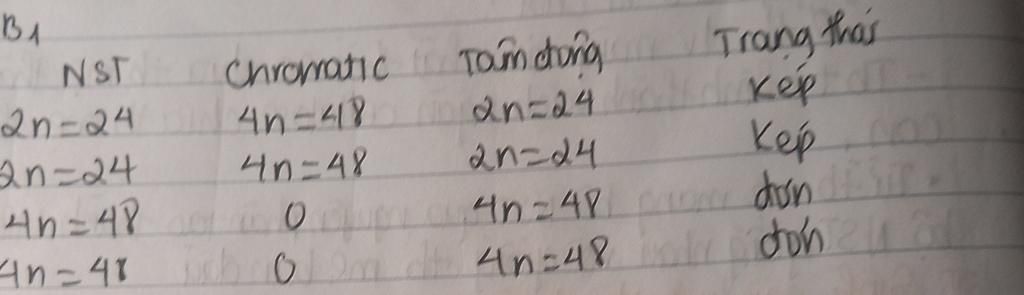 B1
NST Chromatic Tâm động Trạng thái
2n=24 4n=48 2n=24 Kép
2n=24 4n=48 2n=24 Kép
4n=48 0 4n=48 đơn
4n=48 0 4n=48 đơn